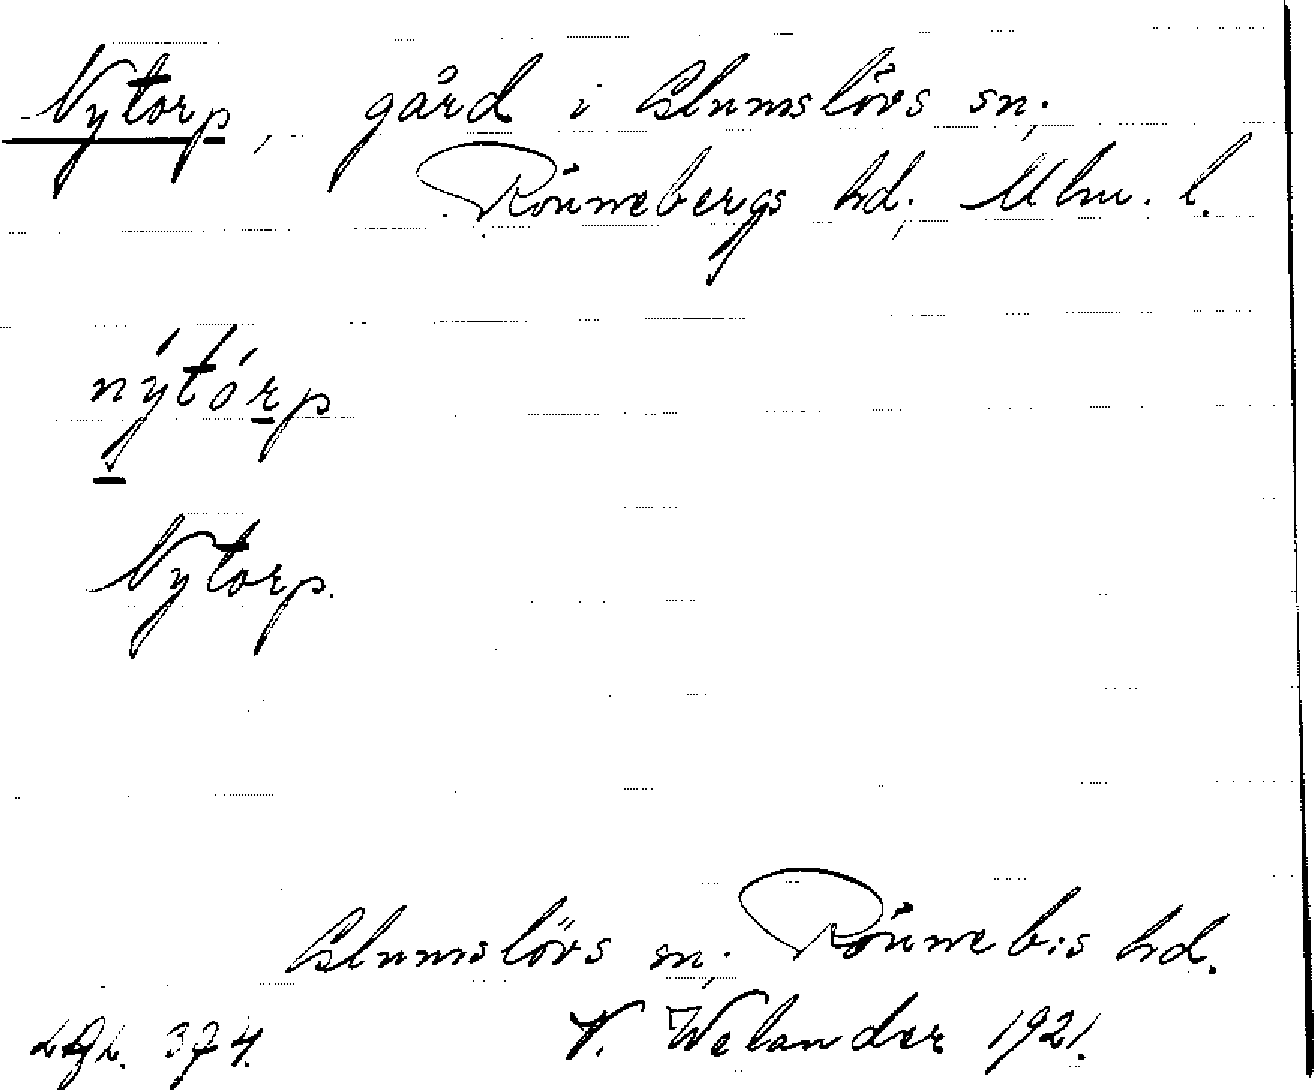 Nytorp, gård i Glumslövs sn;
Rönnebergs hd; Mlm. l.
nýtórp
Nytorp.
Glumslövs sn; Rönneb:s hd.
374. V. Welander 1921.